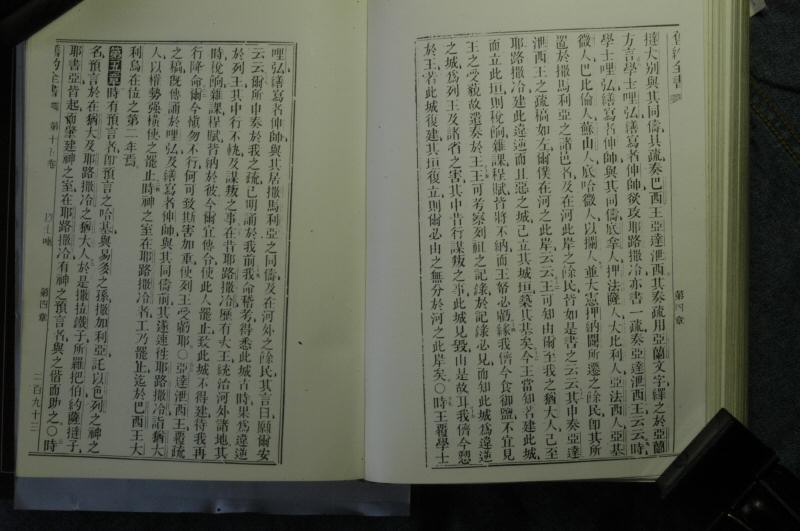 舊約全書
第四章
撻大別與其同儔具疏奏巴西王亞達泄西其奏疏用亞蘭文字繹之於亞蘭
方言學士哩弘繕寫者伸帥欲攻耶路撒冷亦書一疏奏亞達泄西王云云時
學士哩弘繕寫者伸帥與其同儔底拿人押法薩人大比利人亞法西人亞基
微人巴比倫人蘇山人底哈微人以攔人並大憲押納闊所遷之餘民卽其所
置於撒馬利亞之諸邑者及在河此岸之餘民皆如是書之云云其申奏亞達
泄西王之疏稿如左爾僕在河之此岸云云王可知由爾至我之猶大人已至
耶路撒冷建此違逆而且惡之城已立其城垣築其基矣今王當知若建此城
而立此垣則稅餉雜課程賦皆將不納而王帑必虧缺我儕今食御鹽不宜見
王之受藐故遣奏於王王可考察列祖之記錄於記錄必見而知此城爲違逆
之城爲列王及諸省之害其中昔行謀叛之事此城見毀山是故耳我儕今愬
於王若此城復建其垣復立則爾必由之無分於河之此岸矣〇時王覆學士
哩弘繕寫者伸帥與其居撒馬利亞之同儔及在河外之餘民其言曰願爾安
云云爾所申奏於我之疏已明誦於我前我命稽考得悉此城古時果爲違逆
於列王其中行不軌及謀叛之事在昔耶路撒冷歷有大王統治河外諸地其
時稅餉雜課程賦皆納於彼今爾宜傳命使此人罷止致此城不得建待我再
行降命爾今愼勿不行何可致斯害加重使列王受虧耶〇亞達泄西王覆疏
之稿旣傳誦於哩弘及繕寫者伸帥與其同儔前其遂速徃耶路撒冷詣猶大
人以權勢强橫使之罷止時神之室在耶路撒冷者工乃罷止迄於巴西王大
利烏在位之第二年焉
第五章時有預言者卽預言之哈基與易多之孫撒加利亞託以色列之神之
名預言於在猶大及耶路撒冷之猶大人於是撒拉鐵子所羅把伯約薩撻子
耶書亞皆起而肇建神之室在耶路撒冷有神之預言者與之偕而助之〇時
舊約全書
第四章
二百九十三